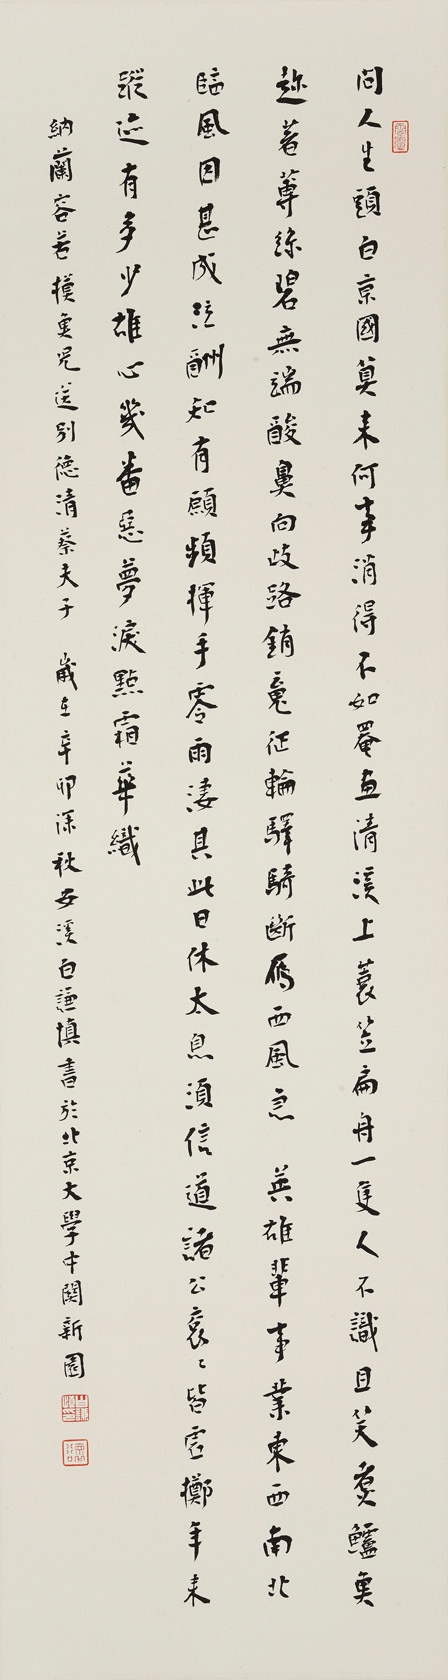 問人生頭白京國算来何事消得不如罨画清溪上蓑笠扁舟一隻人不識且笑煮鱸魚
趂着蓴絲碧無端酸鼻向歧路銷魂征輪驛騎斷雁西風急 英雄輩事業東西南北
臨風因甚成泣酬知有願頻揮手零雨淒其此日休太息須信道諸公袞〻皆虛擲年来
蹤迹有多少雄心幾番惡夢淚點霜華織
納蘭容若摸魚兒送別德清蔡夫子 歲在辛卯深秋安溪白謙慎書於北京大學中關新園